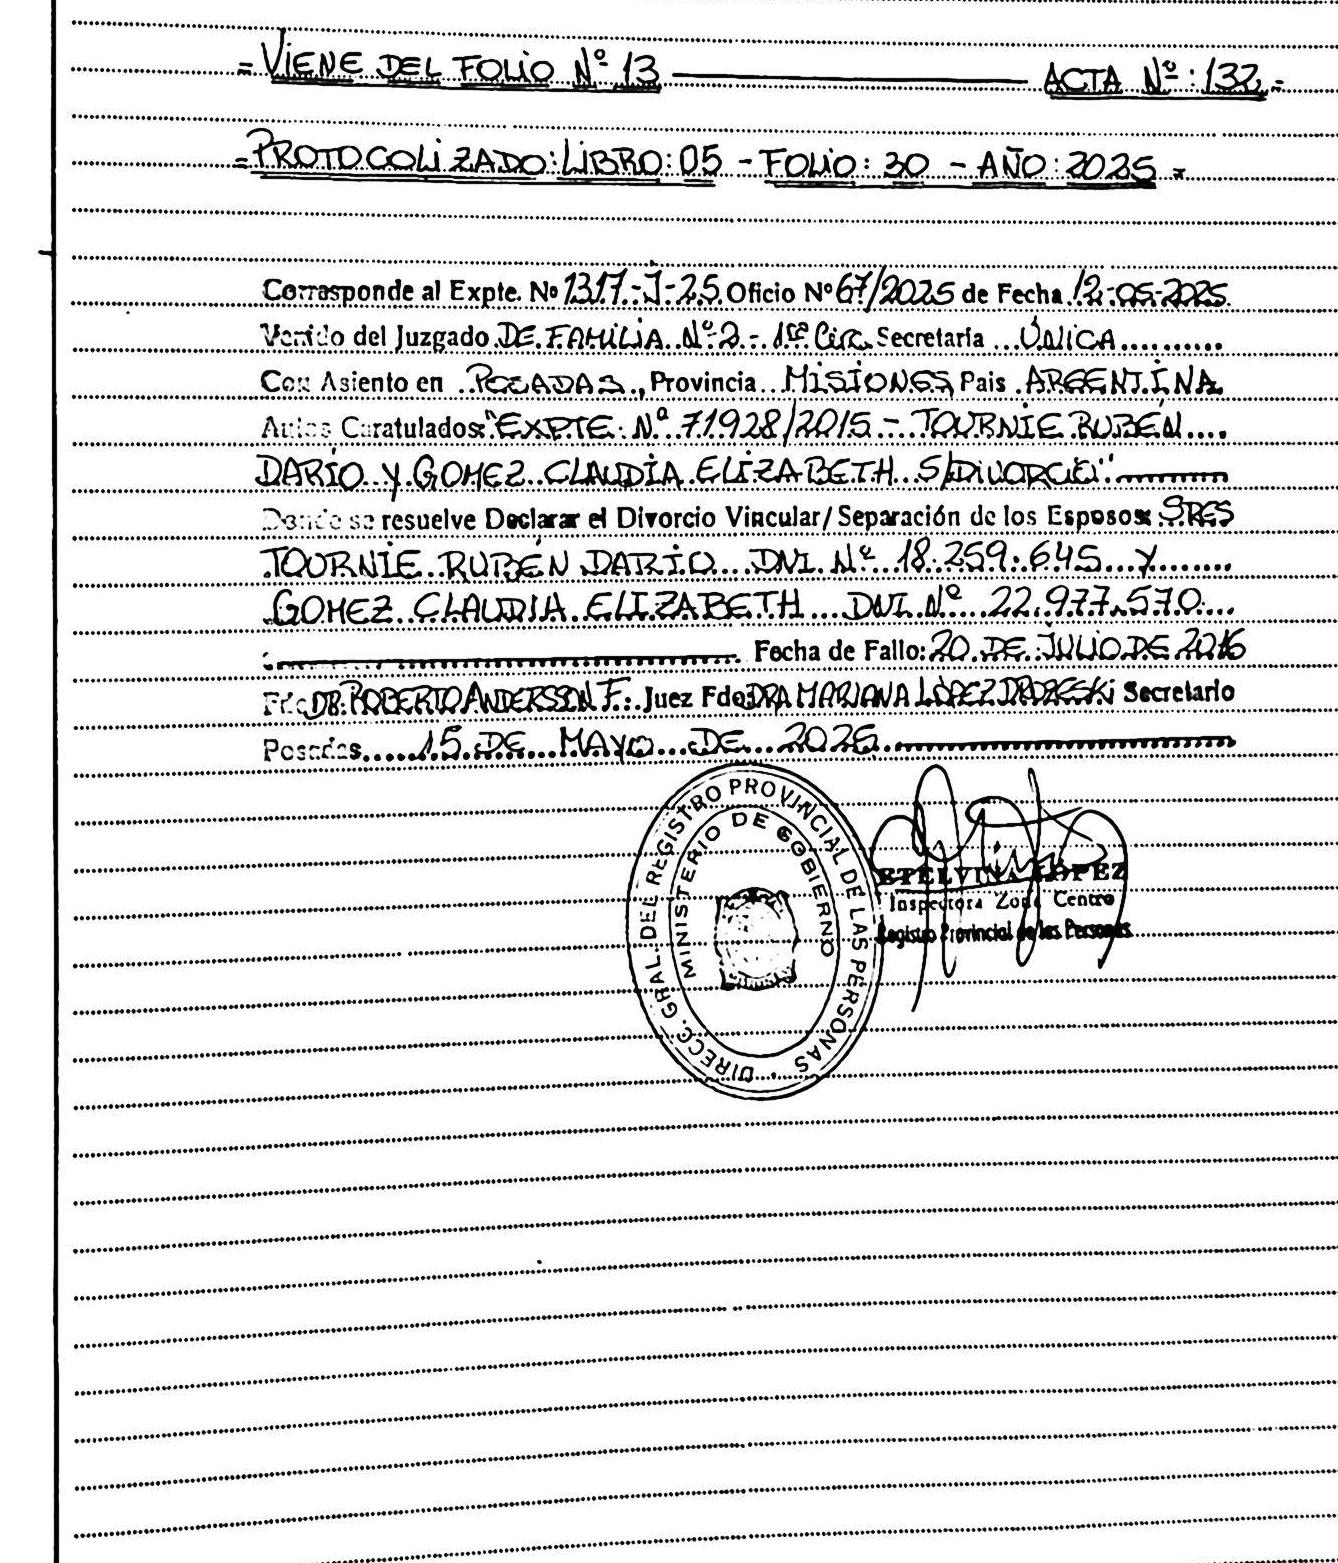 = VIENE DEL FOLIO Nº 13 ACTA Nº : 132 =
= PROTOCOLIZADO: LIBRO: 05 - FOLIO: 30 - AÑO: 2025 =
Corresponde al Expte. Nº 1317-J-25 Oficio Nº 67/2025 de Fecha 12-05-2025
Venido del Juzgado DE FAMILIA Nº 2 - 1ra Circ. Secretaría ... ÚNICA ..........
Con Asiento en POSADAS, Provincia MISIONES, Pais ARGENTINA
Autos Caratulados: "EXPTE: Nº 71928/2015 - TOURNIE RUBÉN ....
DARÍO Y GOMEZ CLAUDIA ELIZABETH S/DIVORCIO"
Donde se resuelve Declarar el Divorcio Vincular/ Separación de los Esposos: SRES
TOURNIE RUBÉN DARIO DNI. Nº 18.259.645 Y
GOMEZ CLAUDIA ELIZABETH DNI. Nº 22.977.570
Fecha de Fallo: 20 DE JULIO DE 2016
Fdo DR. ROBERTO ANDERSSON F. Juez Fdo DRA MARIANA LÓPEZ Secretario
Posadas 15 DE MAYO DE
DIRECC. GRAL. DEL REGISTRO PROVINCIAL DE LAS PERSONAS
MINISTERIO DE GOBIERNO
ETELVINA LOPEZ
Inspectora Zona Centro
Registro Provincial de las Personas